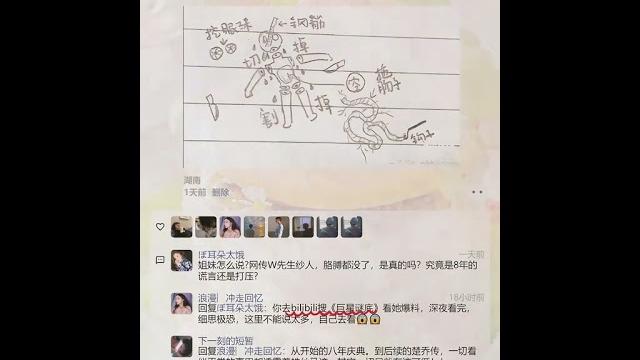 挖眼球
钢筋
切
掉
割
掉
拖
肠子
钩子
湖南
1天前 删除
ぼ耳朵太饿
一天前
姐妹怎么说?网传W先生纱人，胳膊都没了，是真的吗？究竟是8年的
谎言还是打压？
浪漫| 冲走回忆
18小时前
回复ぼ耳朵太饿：你去bilibili搜《巨星谜底》看她爆料，深夜看完，
细思极恐，这里不能说太多，自己去看
下一刻的短暂
回复浪漫| 冲走回忆：从开始的八年庆典，到后续的楚乔传，一切看